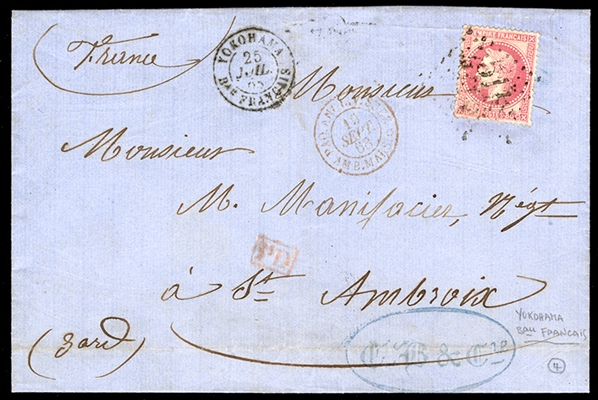 (France)
YOKOHAMA
25
JUIL.
68
Bau FRANÇAIS
EMPIRE FRANÇAIS
Monsieur
SEPT.
68
AMB. MARS.
Monsieur
M. Manifacier, Négt
PD
à St Ambroix
(Gard)
YOKOHAMA
Bau FRANCAIS
& Cie
4